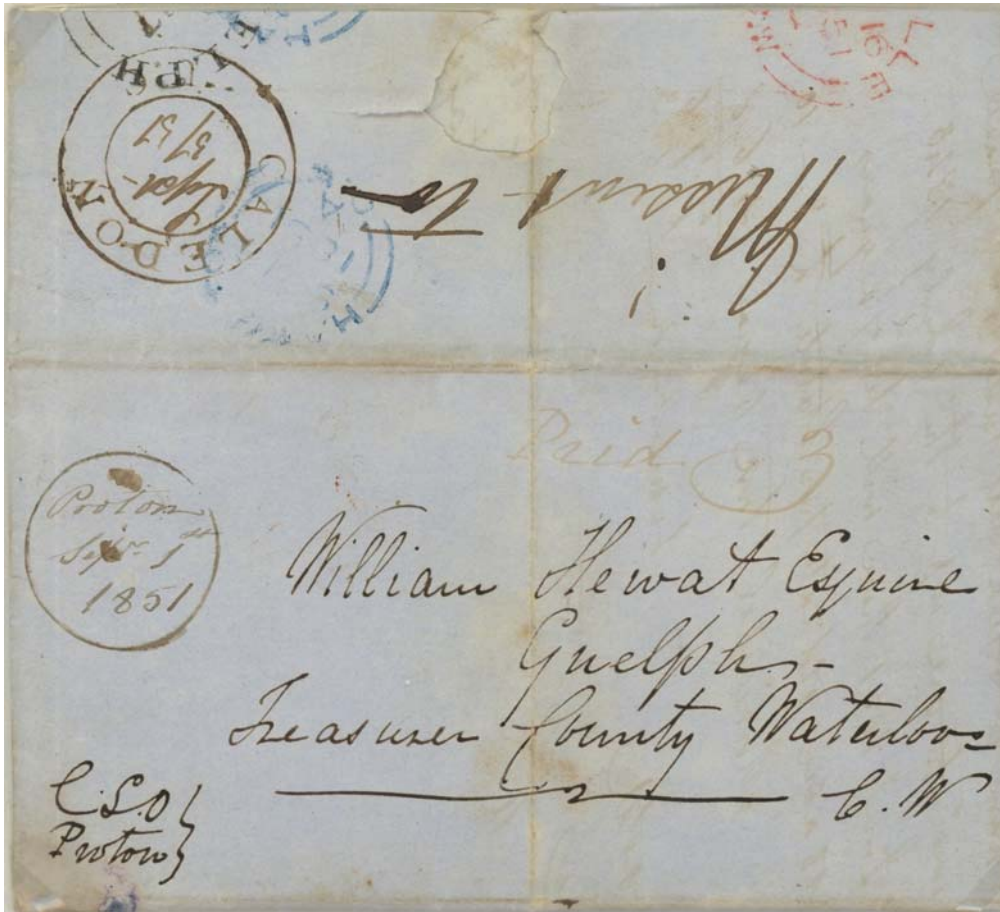 CALEDON
Sept
3/51
Missent to
Paid 3
Proton
Sepr 1st
1851
William Hewat Esquire
Guelph -
Treasurer County Waterloo
C. W
C.L.O
Proton